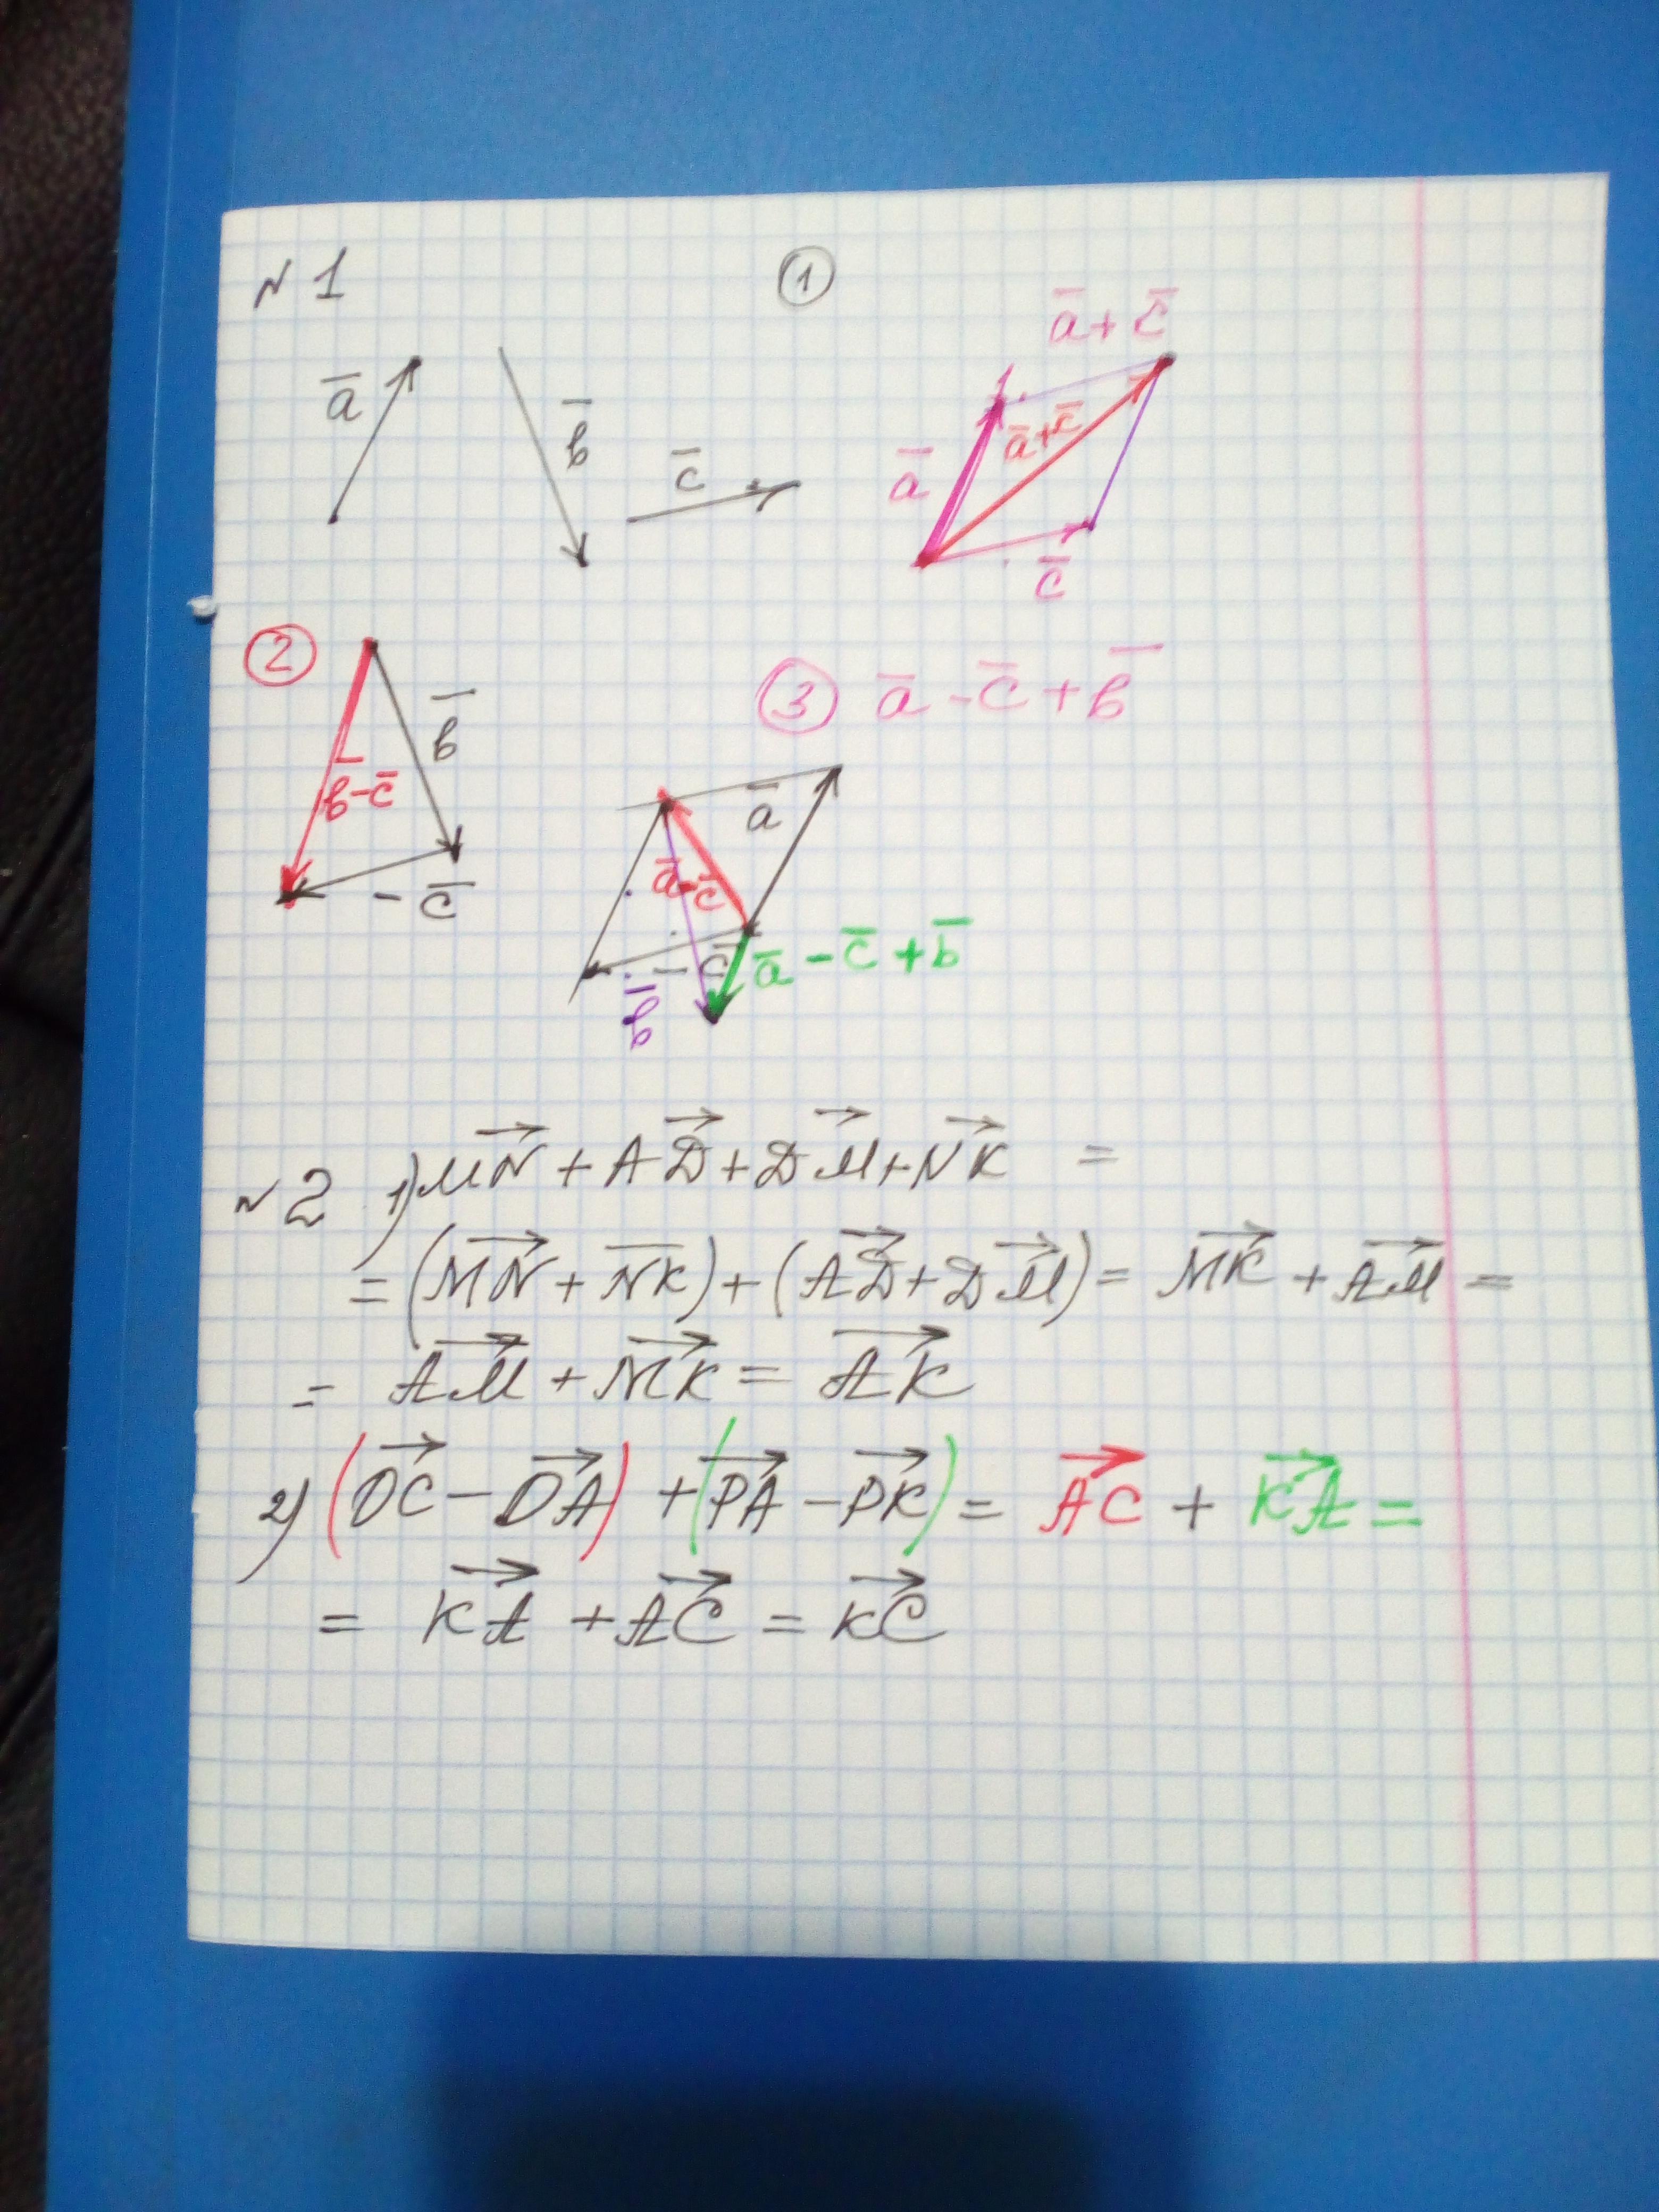 №1
①
a̅
b̅
c̅
a̅ + c̅
a̅
a̅+c̅
c̅
②
b̅
b̅-c̅
-c̅
③ a̅ - c̅ + b̅
a̅
a̅-c̅
-c̅
a̅ - c̅ + b̅
b̅
№2 1) MN⃗ + AD⃗ + DM⃗ + NK⃗ =
= (MN⃗ + N̅K̅) + (AD⃗ + DM⃗) = MK⃗ + AM⃗ =
= AM⃗ + MK⃗ = AK⃗
2) (DC⃗ - DA⃗) + (PA⃗ - PK⃗) = AC⃗ + KA⃗ =
= KA⃗ + AC⃗ = KC⃗